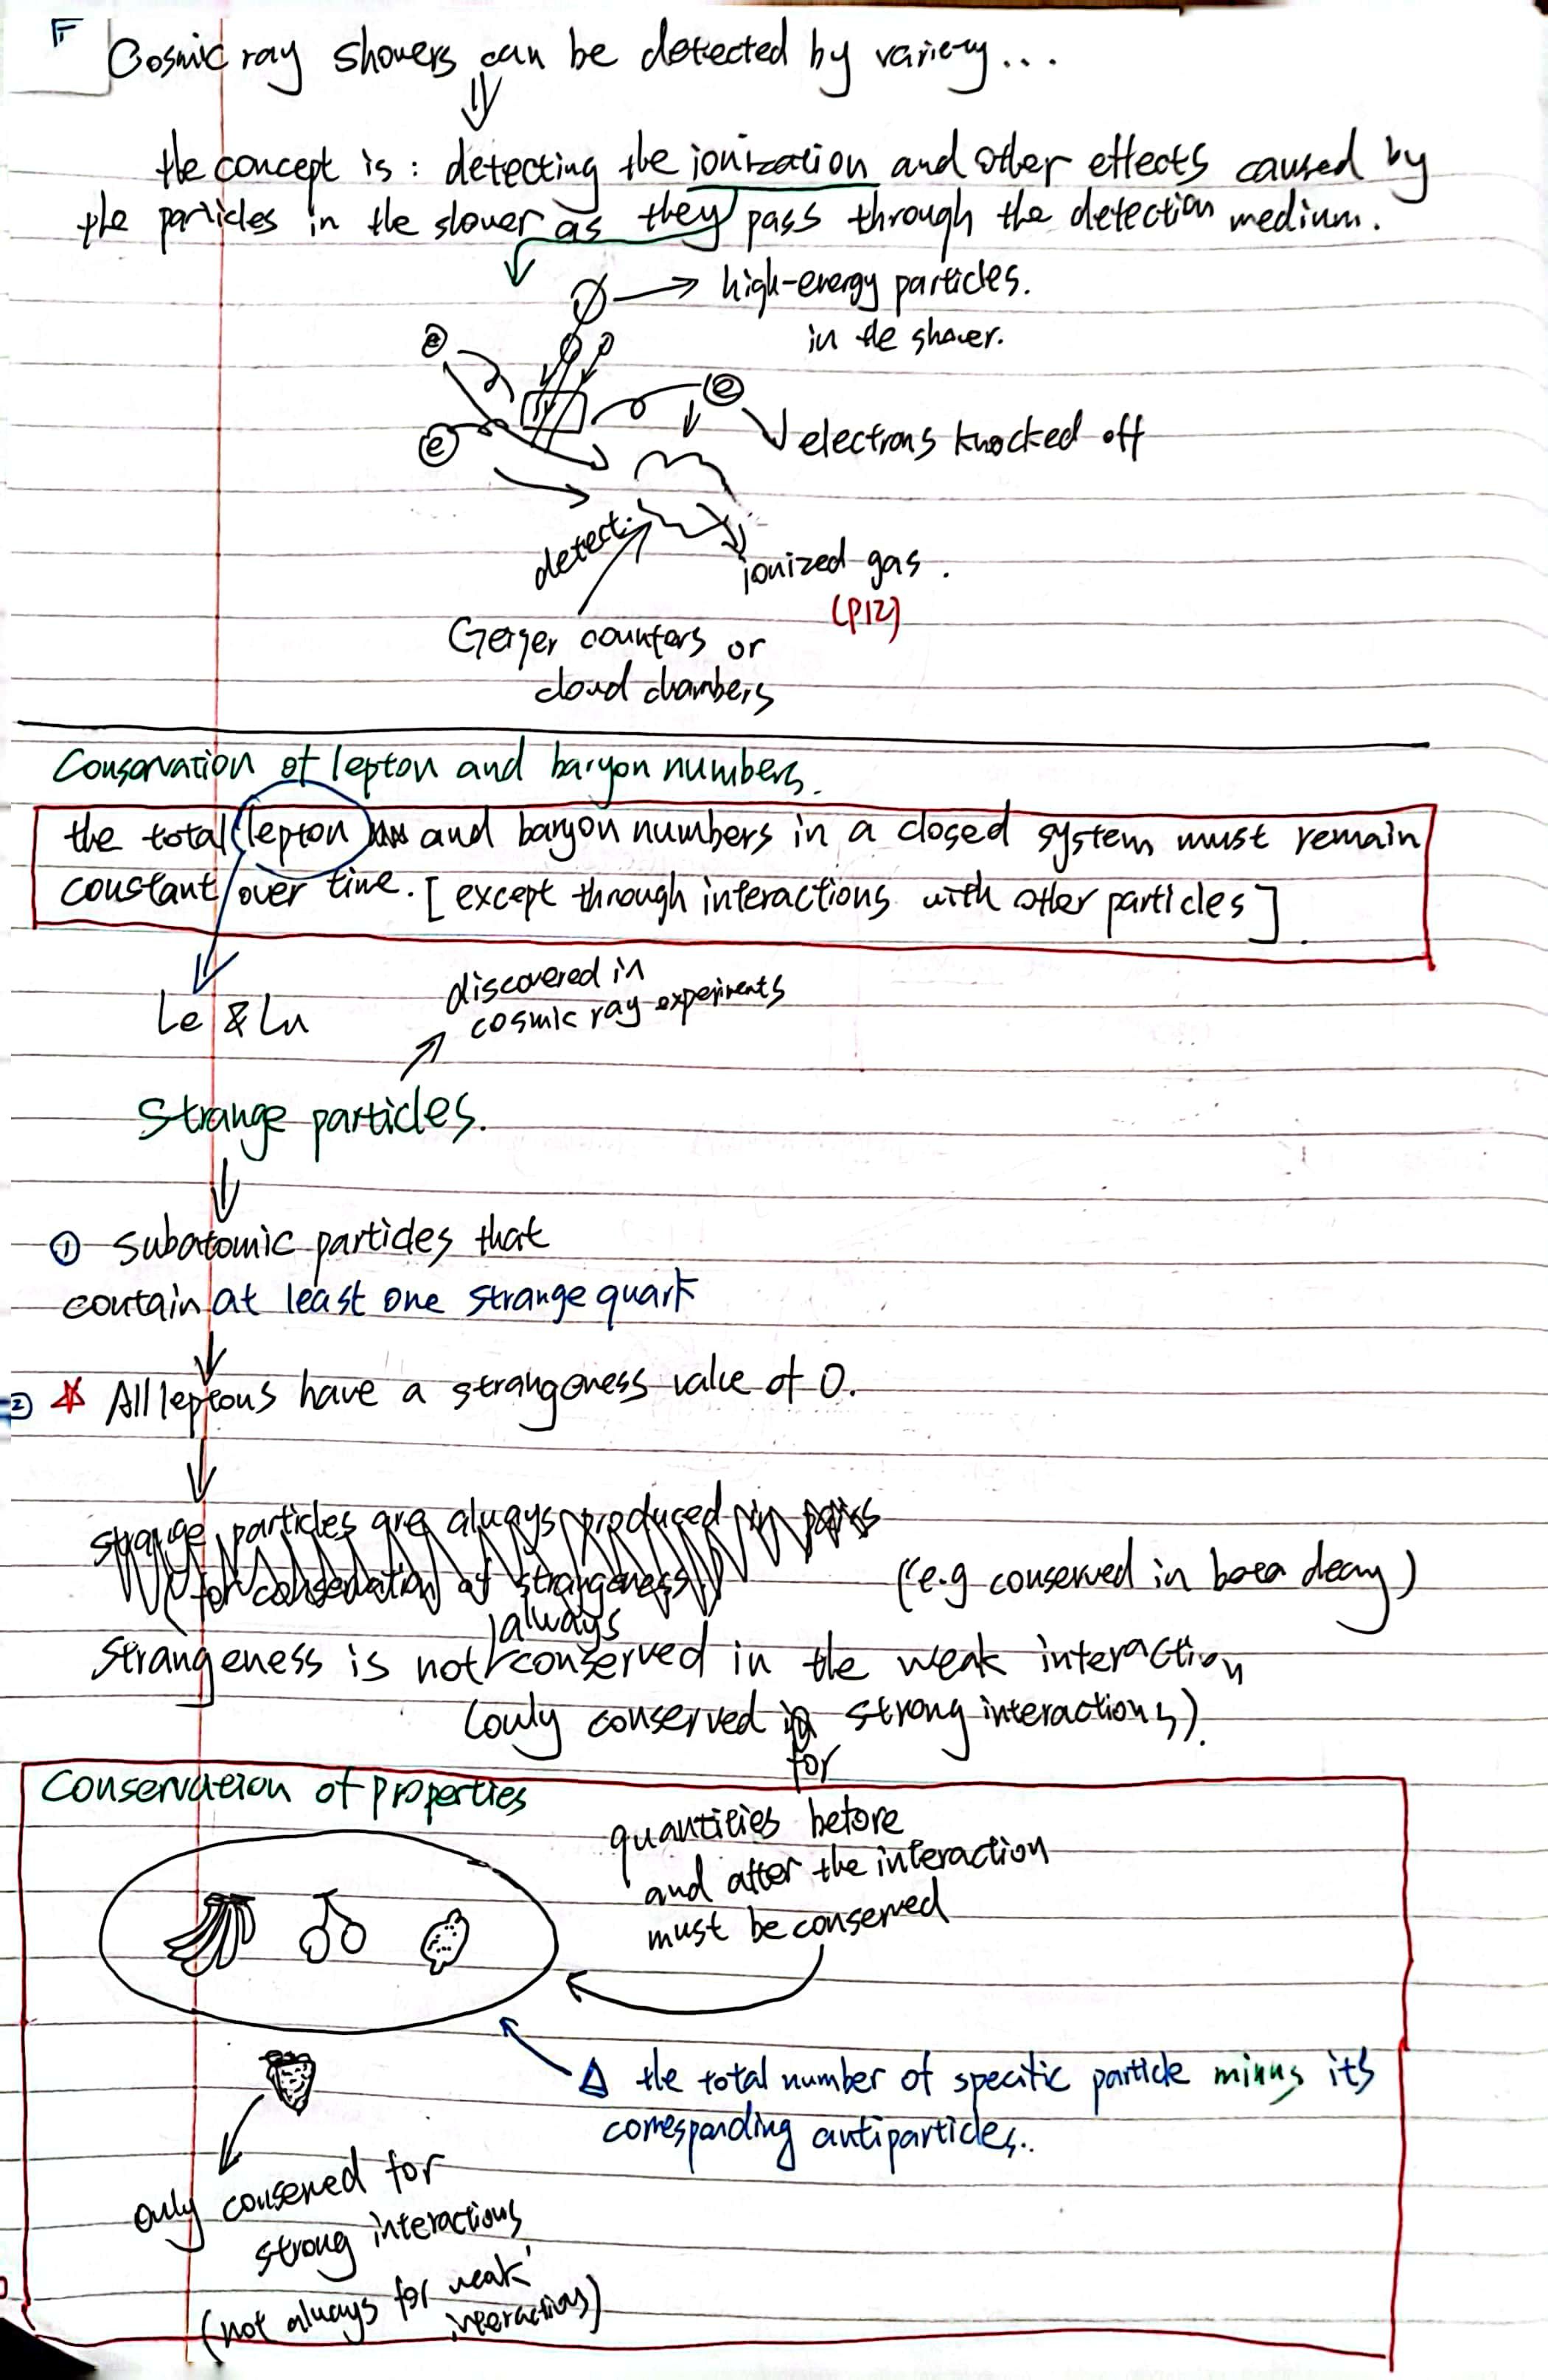 Cosmic ray showers can be detected by variety...
the concept is : detecting the ionization and other effects caused by
the particles in the shower as they pass through the detection medium.
high-energy particles.
in the shower.
e
e
e
electrons knocked off
detect
ionized gas.
(P12)
Geiger counters or
cloud chambers
Conservation of lepton and baryon numbers.
the total lepton and baryon numbers in a closed system must remain
constant over time. [except through interactions with other particles].
discovered in
cosmic ray experiments
Le & Lu
Strange particles.
① subatomic particles that
contain at least one strange quark
② All leptons have a strangeness value of 0.
strange particles are always produced in pairs
(for conservation of strangeness)
(e.g conserved in beta decay)
always
Strangeness is not conserved in the weak interaction
(only conserved in strong interactions).
for
Conservation of properties
quantities before
and after the interaction
must be conserved
Δ the total number of specific particle minus its
corresponding antiparticles..
only conserved for
strong interactions
(not always for weak
interactions)